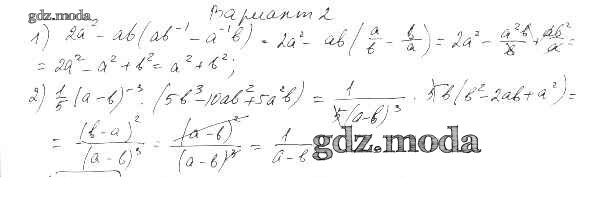 gdz.moda
Вариант 2
1) 2a² - ab(ab⁻¹ - a⁻¹b) = 2a² - ab(a/b - b/a) = 2a² - a²b/b + ab²/a =
= 2a² - a² + b² = a² + b²;
2) 1/5 (a-b)⁻³ · (5b³ - 10ab² + 5a²b) = 1/5(a-b)³ · 5b(b² - 2ab + a²) =
= (b-a)²/(a-b)³ = (a-b)²/(a-b)³ = 1/a-b
gdz.moda